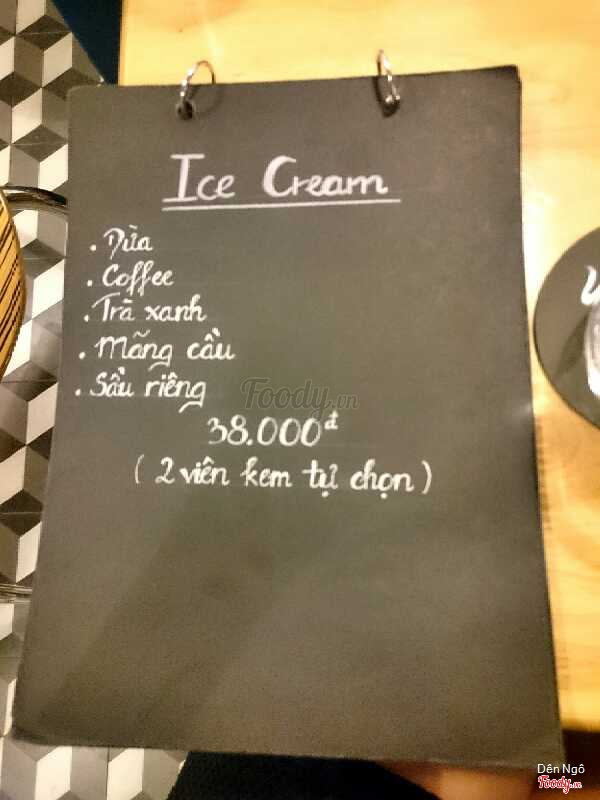 Ice Cream
. Dừa
. Coffee
. Trà xanh
. Mãng cầu
. Sầu riêng
Foody.vn
38.000đ
( 2 viên kem tự chọn )
Dên Ngô
Foody.vn